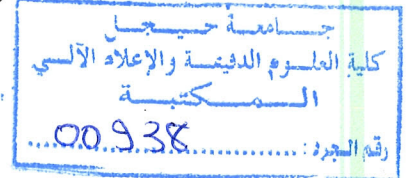 جامعة جيجل
كلية العلوم الدقيقة والإعلام الآلي
المكتبة
رقم الجرد: 00938